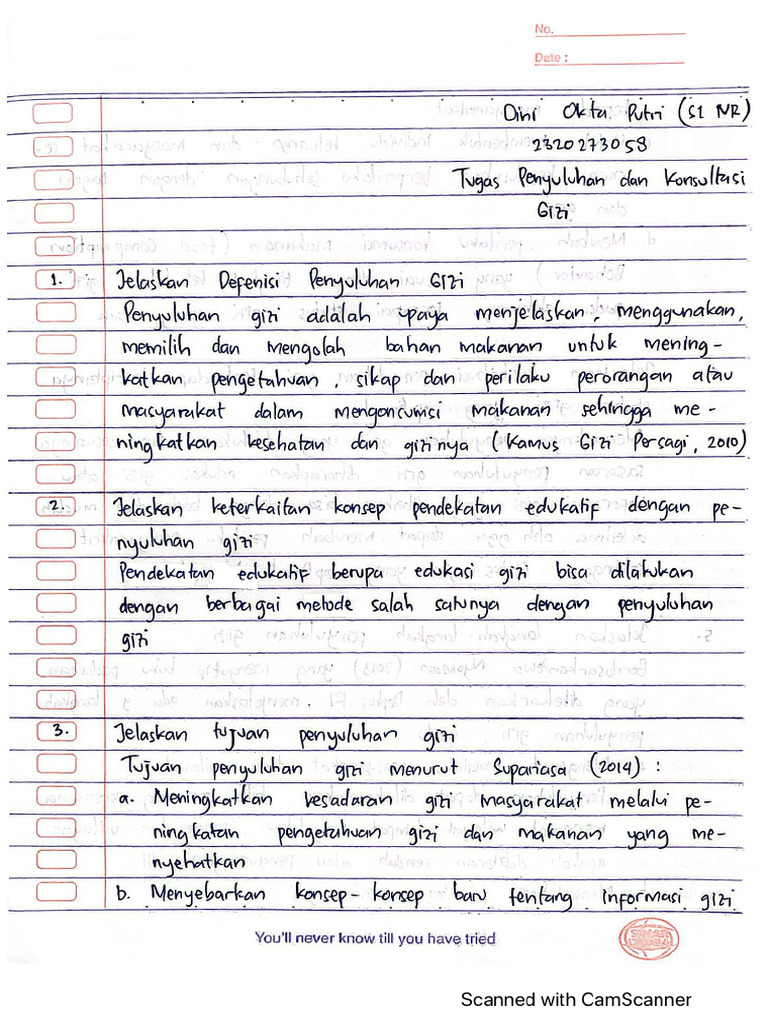 No.
Date :
Dini Okta Putri (S1 NR)
2320273058
Tugas Penyuluhan dan Konsultasi
Gizi
1. Jelaskan Defenisi Penyuluhan Gizi
Penyuluhan gizi adalah upaya menjelaskan, menggunakan,
memilih dan mengolah bahan makanan untuk mening-
katkan pengetahuan, sikap dan perilaku perorangan atau
masyarakat dalam mengoncumsi makanan sehingga me-
ningkatkan kesehatan dan gizinya (Kamus Gizi Persagi, 2010)
2. Jelaskan keterkaitan konsep pendekatan edukatif dengan pe-
nyuluhan gizi
Pendekatan edukatif berupa edukasi gizi bisa dilakukan
dengan berbagai metode salah satunya dengan penyuluhan
gizi
3. Jelaskan tujuan penyuluhan gizi
Tujuan penyuluhan gizi menurut Supariasa (2014) :
a. Meningkatkan kesadaran gizi masyarakat melalui pe-
ningkatan pengetahuan gizi dan makanan yang me-
nyehatkan
b. Menyebarkan konsep-konsep baru tentang informasi gizi
You'll never know till you have tried
SINAR DUNIA
Scanned with CamScanner